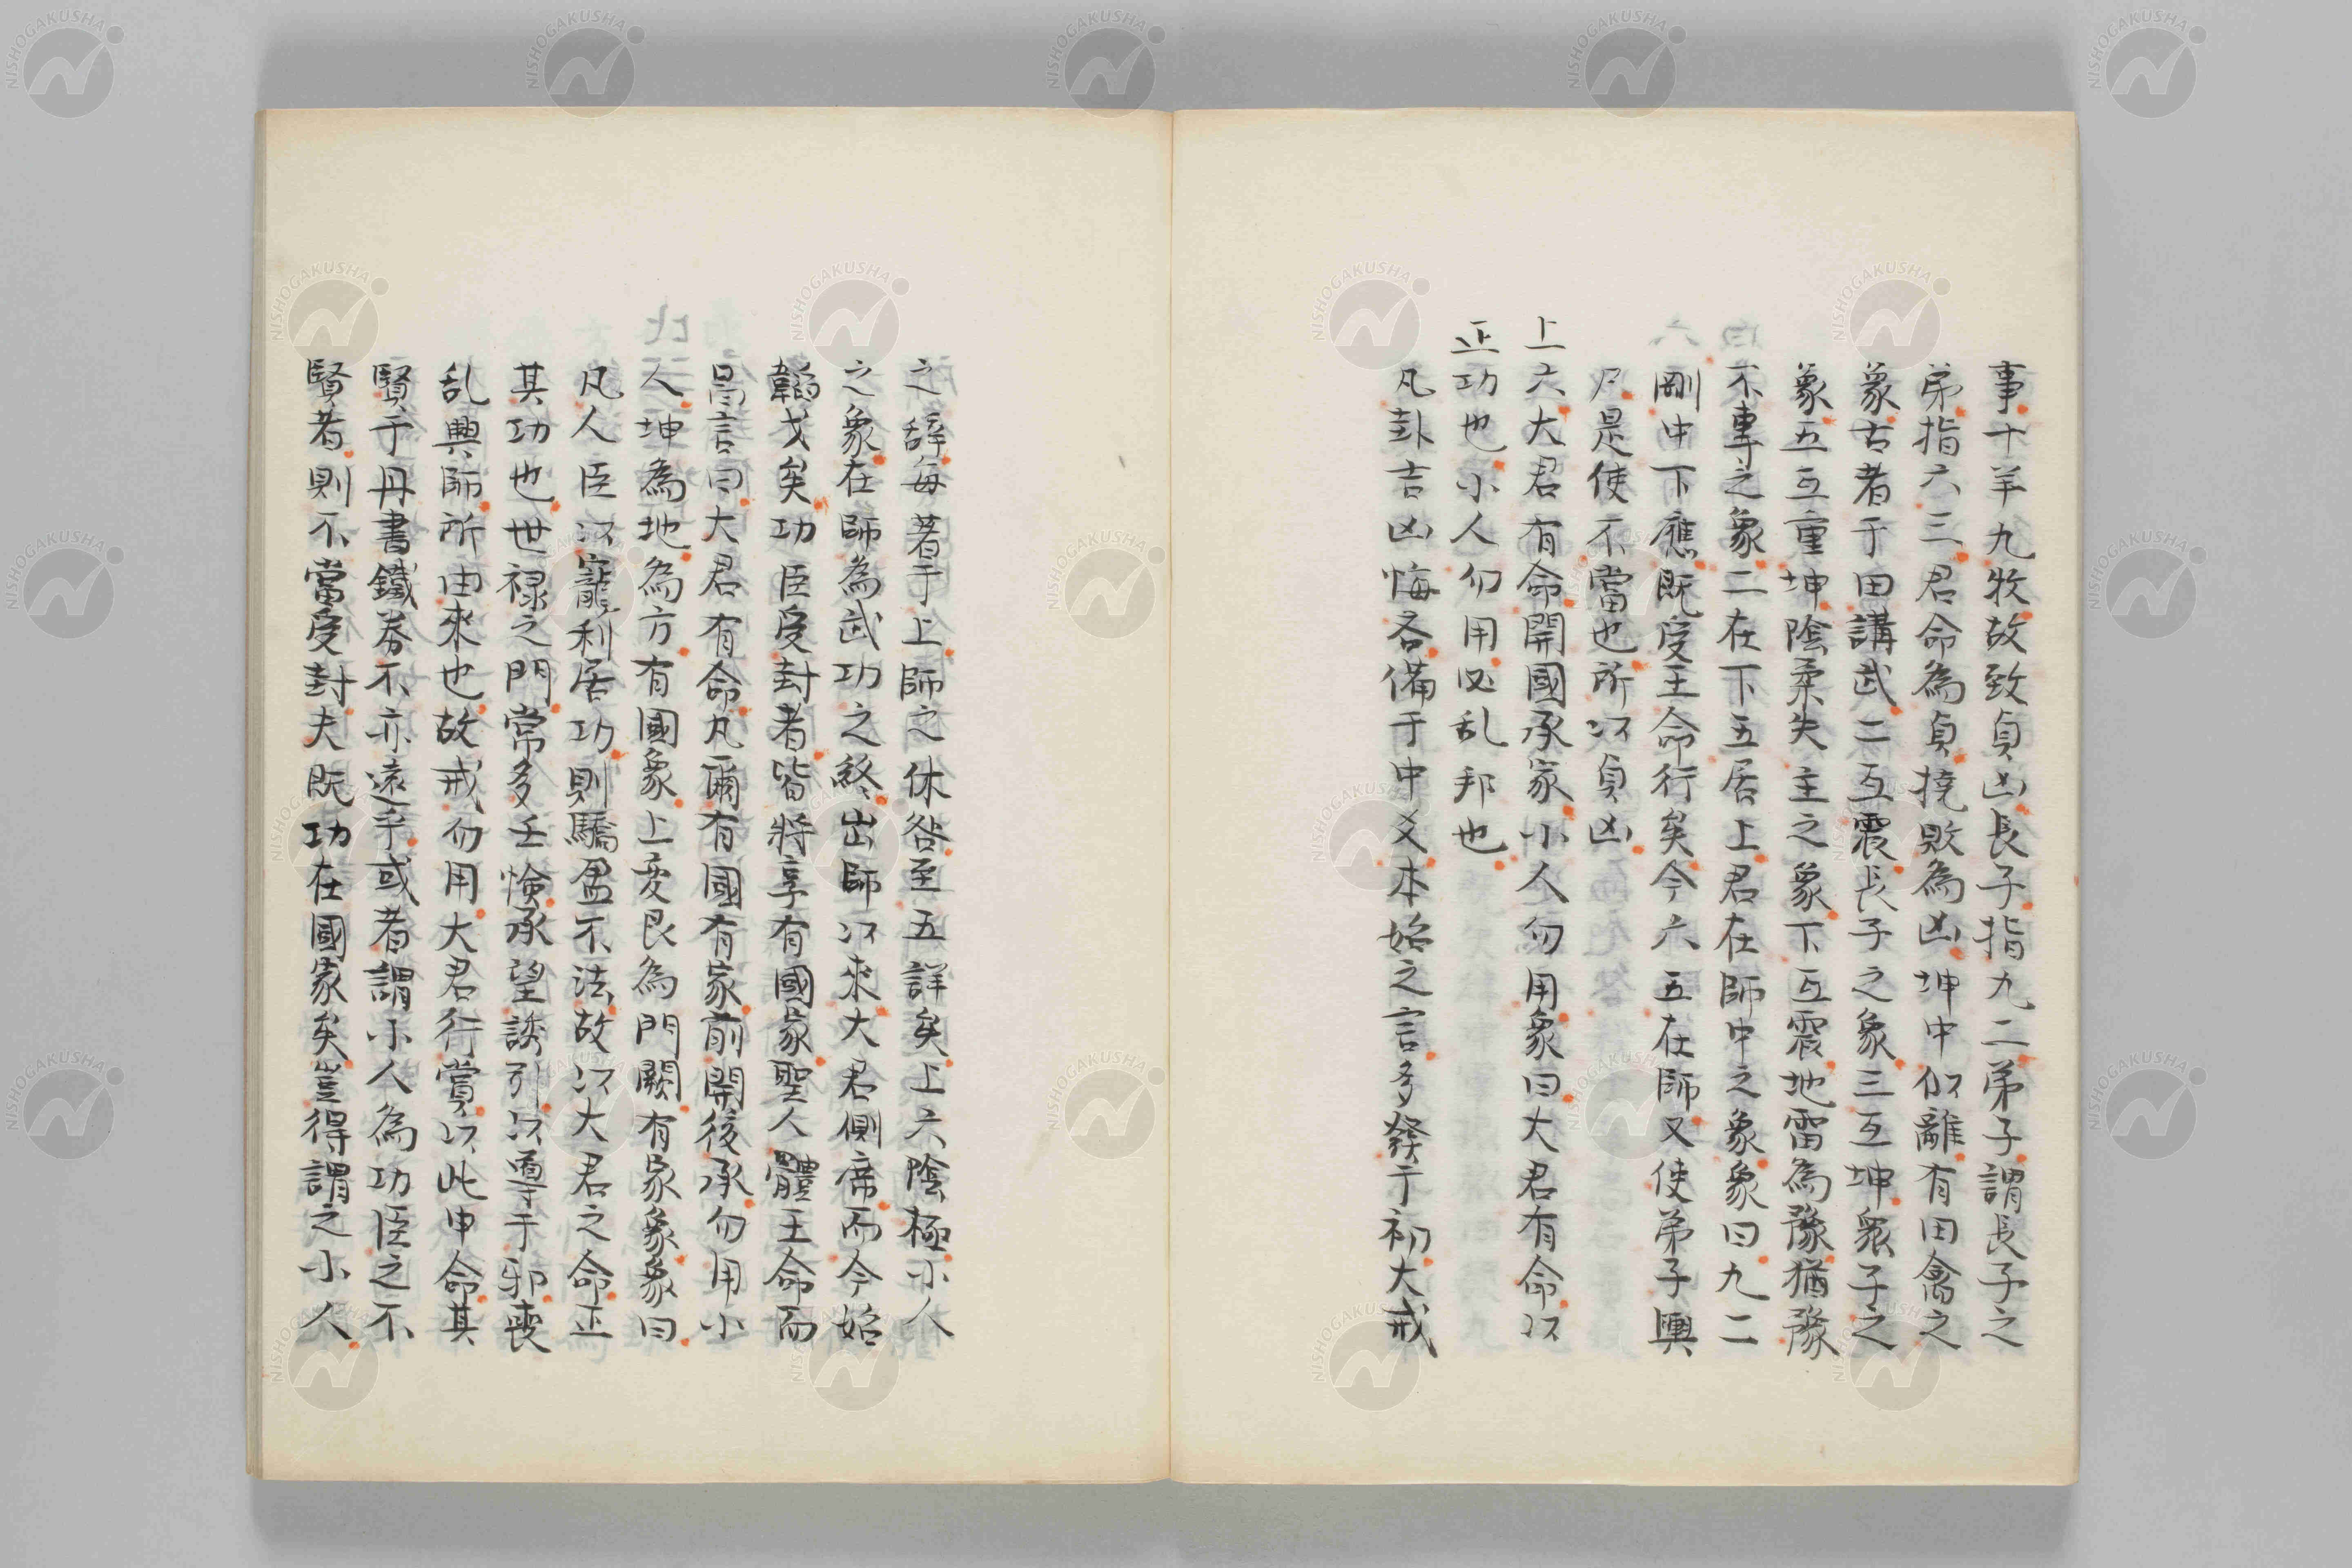 事十羊九牧故致貞凶長子指九二弟子謂長子之
弟指六三君命為貞撓敗為凶坤中似離有田禽之
象古者于田講武二互震長子之象三互坤衆子之
象五互重坤陰柔失主之象下互震地雷為豫猶豫
不專之象二在下五居上君在師中之象象曰九二
剛中下應既受王命行矣今六五在師又使弟子輿
尸是使不當也所以貞凶
上六大君有命開國承家小人勿用象曰大君有命以
正功也小人勿用必乱邦也
凡卦吉凶悔吝備于中爻本始之言多發于初大戒
之辞每著于上師之休咎至五詳矣上六陰極小人
之象在師為武功之終出師以來大君側席而今始
韜戈矣功臣受封者皆將享有國家聖人體王命而
昌言曰大君有命凡爾有國有家前開後承勿用小
人坤為地為方有國象上変艮為門闕有家象象曰
凡人臣以寵利居功則驕盈不法故以大君之命正
其功也世禄之門常多壬憸承望誘引以導于邪喪
乱興師所由來也故戒勿用大君行賞以此申命其
賢于丹書鐵券不亦遠乎或者謂小人為功臣之不
賢者則不當受封夫既功在國家矣豈得謂之小人